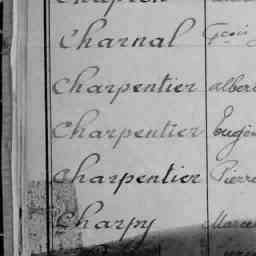 Charnal
Charpentier Albert
Charpentier Eugèn
Charpentier Pierre
Charpy Marcel